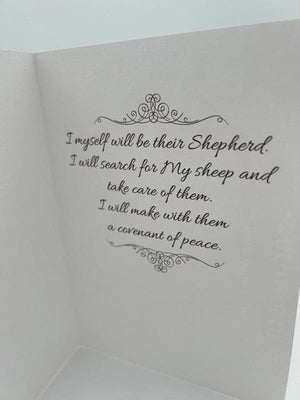 I myself will be their Shepherd.
I will search for My sheep and
take care of them.
I will make with them
a covenant of peace.